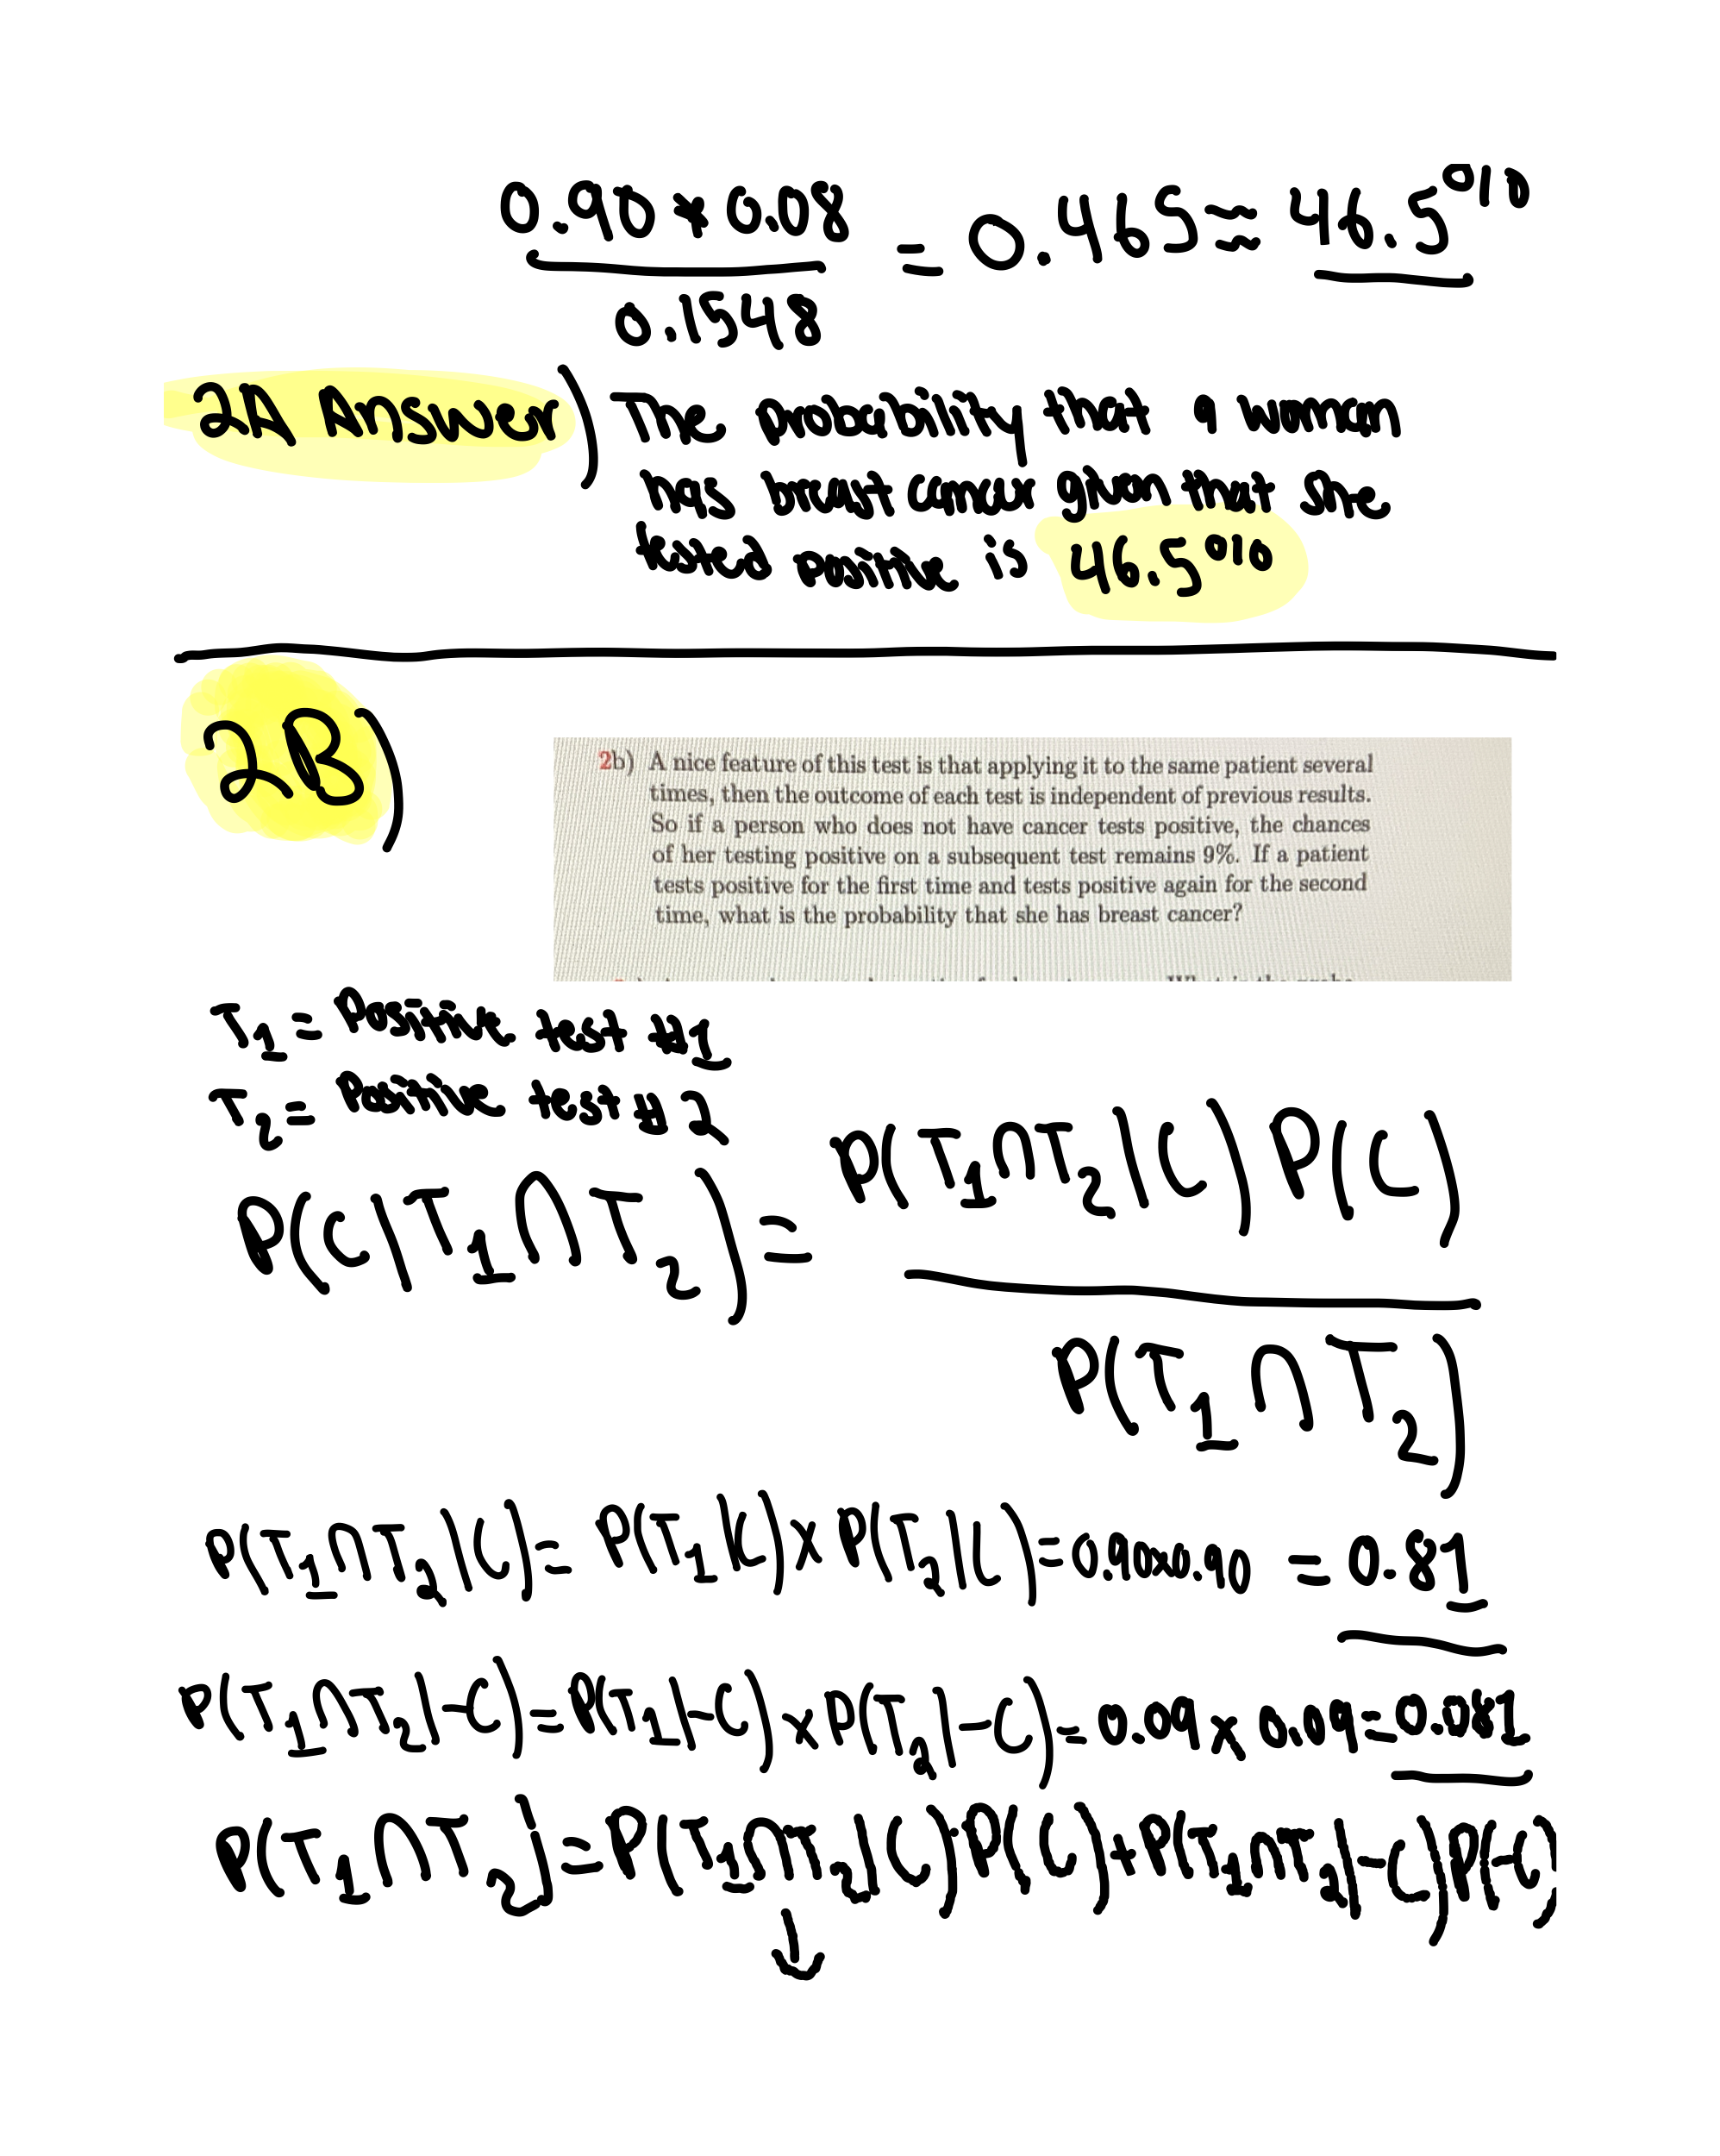 0.90 * 0.08 = 0.465 ≈ 46.5%
0.1548
2A Answer) The probability that a woman
has breast cancer given that she
tested positive is 46.5%
2B)
2b) A nice feature of this test is that applying it to the same patient several
times, then the outcome of each test is independent of previous results.
So if a person who does not have cancer tests positive, the chances
of her testing positive on a subsequent test remains 9%. If a patient
tests positive for the first time and tests positive again for the second
time, what is the probability that she has breast cancer?
T1 = Positive test #1
T2 = Positive test #2
P(C|T1∩T2) = P(T1∩T2|C) P(C)
P(T1∩T2)
P(T1∩T2|C) = P(T1|C) x P(T2|C) = 0.90x0.90 = 0.81
P(T1∩T2|-C) = P(T1|-C) x P(T2|-C) = 0.09 x 0.09 = 0.081
P(T1∩T2) = P(T1∩T2|C)·P(C) + P(T1∩T2|-C) P(-C)
↓